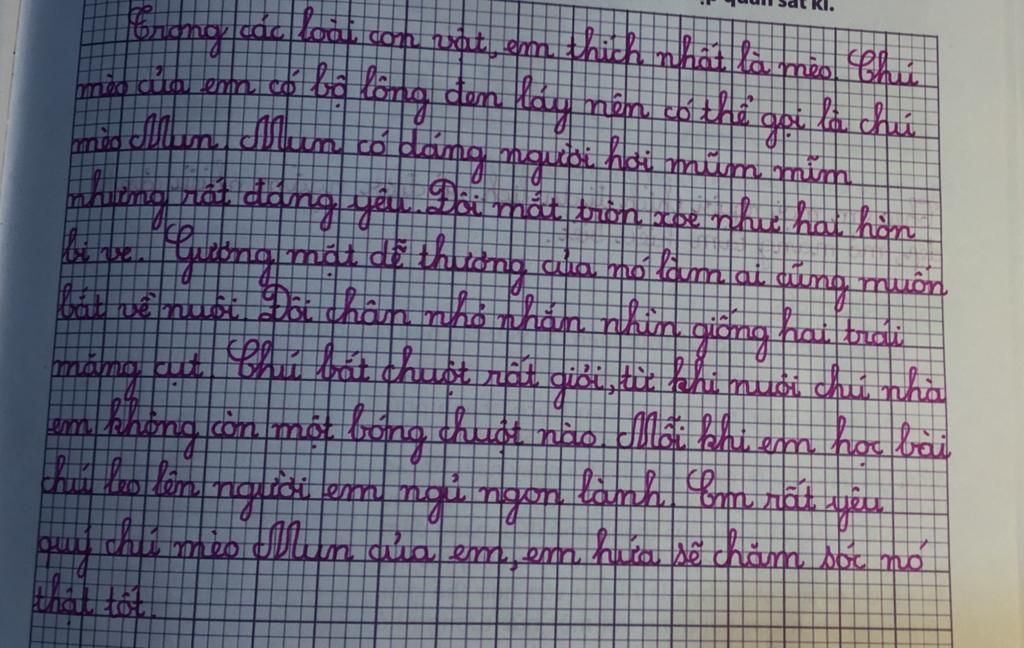 quan sát kĩ.
Trong các loài con vật, em thích nhất là mèo. Chú
mèo của em có bộ lông đen láy nên có thể gọi là chú
mèo Mun. Mun có dáng người hơi mũm mĩm
nhưng rất đáng yêu. Đôi mắt tròn xoe như hai hòn
bi ve. Gương mặt dễ thương của nó làm ai cũng muốn
bắt về nuôi. Đôi chân nhỏ nhắn nhìn giống hai trái
măng cụt. Chú bắt chuột rất giỏi, từ khi nuôi chú nhà
em không còn một bóng chuột nào. Mỗi khi em học bài
chú leo lên người em ngủ ngon lành. Em rất yêu
quý chú mèo Mun của em, em hứa sẽ chăm sóc nó
thật tốt.